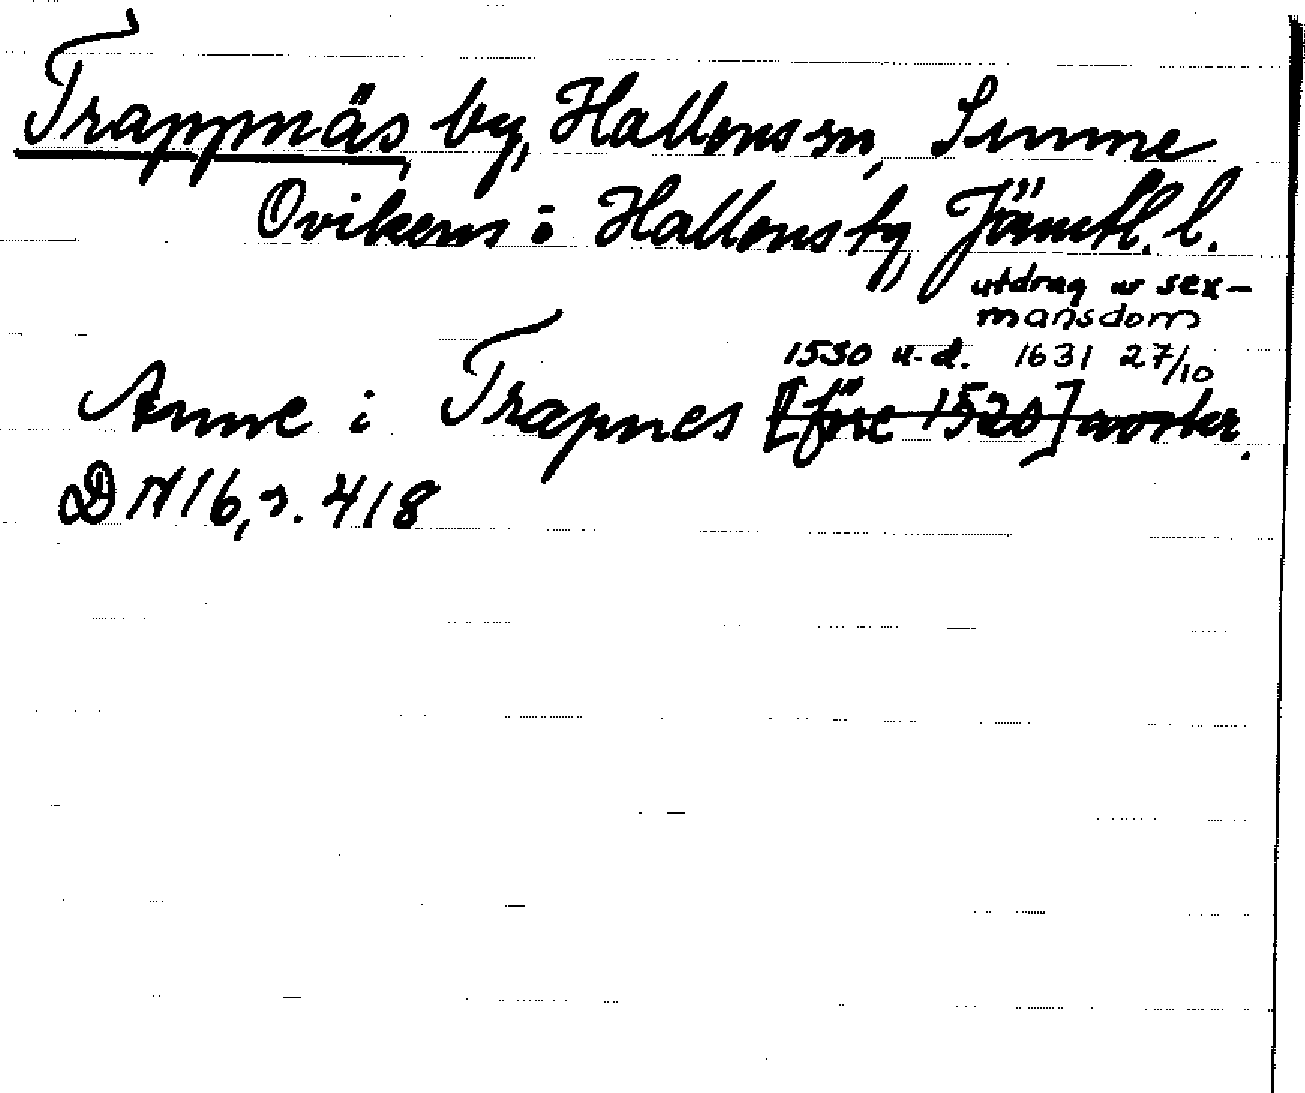 Trappnäs by, Hallens sn, Sunne
Ovikens o Hallens tg Jämtl. l.
utdrag ur sex-
mansdom
1530 u.d. 1631 27/10
Anne i Trapnes [före 1520] avskr.
DN 16, s. 418